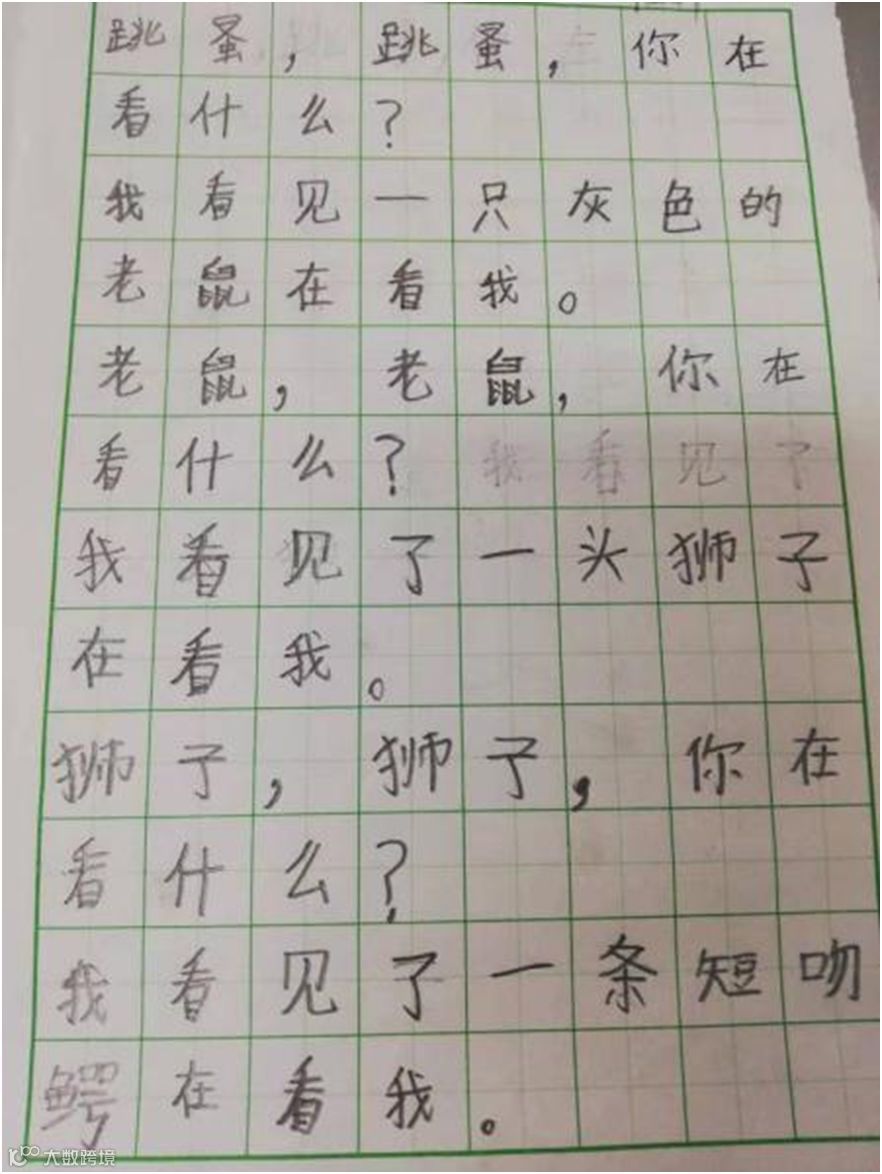 跳蚤，跳蚤，你在
看什么？
我看见一只灰色的
老鼠在看我。
老鼠，老鼠，你在
看什么？我看见了
我看见了一头狮子
在看我。
狮子，狮子，你在
看什么？
我看见了一条短吻
鳄在看我。
大数跨境